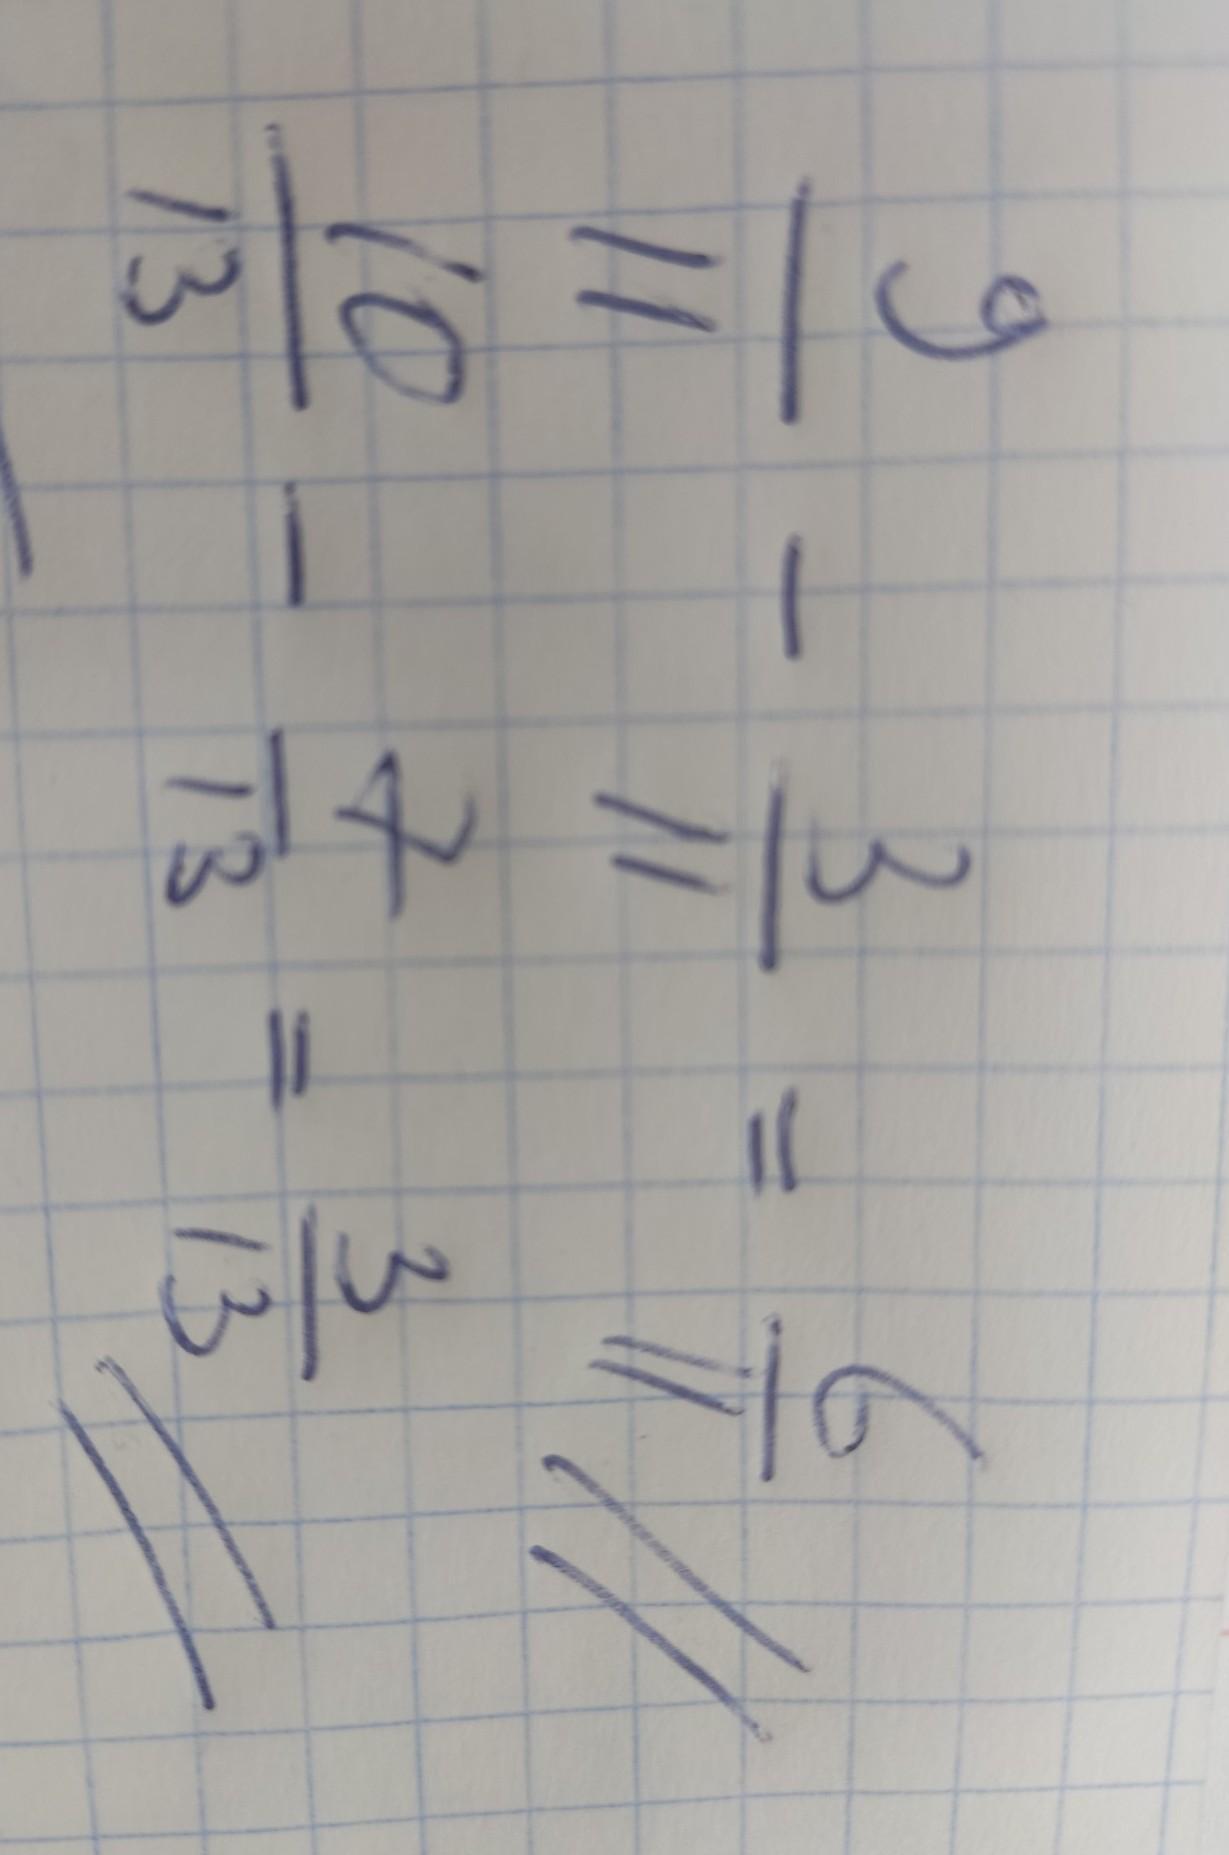 9/11 - 3/11 = 6/11
10/13 - 7/13 = 3/13